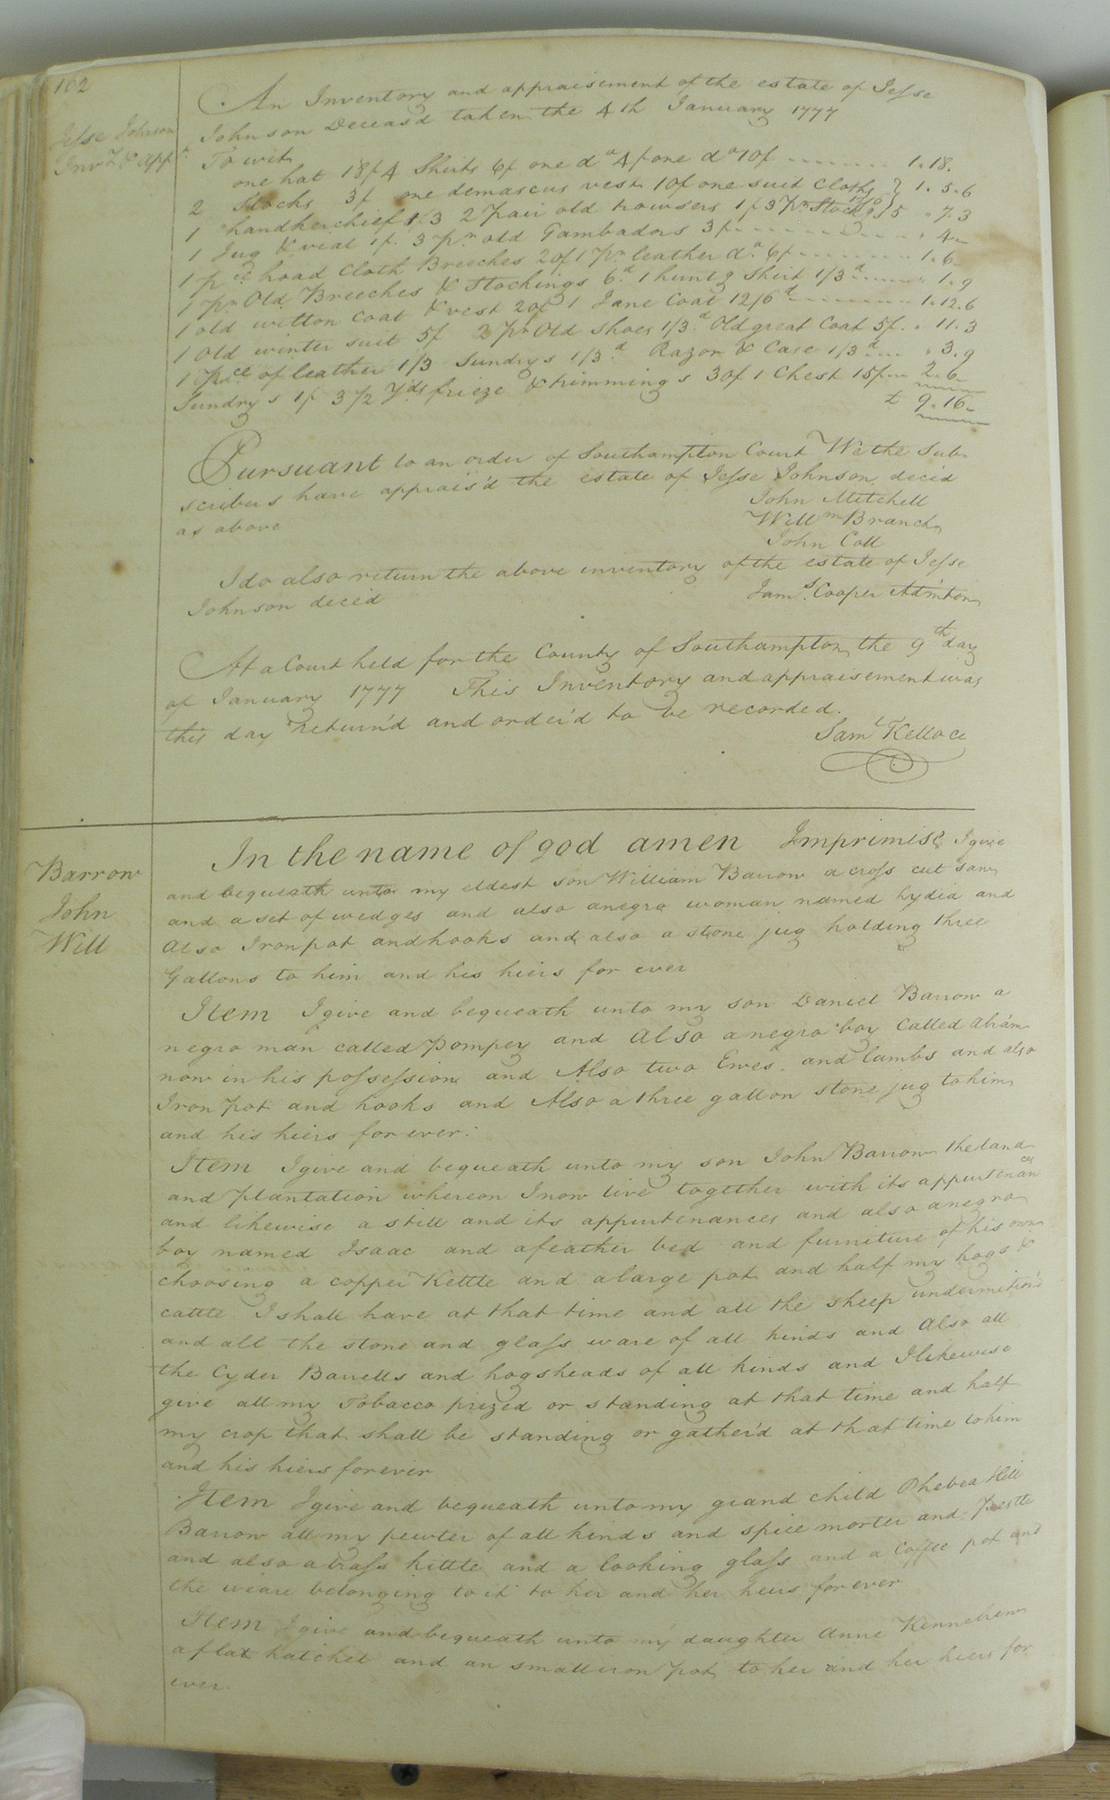 102
Jesse Johnson
Inv.y & app.t
An Inventory and appraisement of the estate of Jesse
Johnson Deceas'd taken the 4th January 1777
To wit
one hat 18/ 4 Shirts 6/ one do 4/ one do 10/ 1.18.
2 Stocks 3/ one demascus vest 10/ one suit Cloths 1.5.6
1 handkerchief 1/3 2 pair old trowsers 1/3 7 pr Stockgs /5 . 7.3
1 Jug & veal 1/. 3 pr old Gambadors 3/ . 4.
1 pce broad Cloth Breeches 20/ 1 pr leather do 6/ 1.6.
1 pr Old Breeches & Stockings 6d 1 huntg Shirt 1/3d 1.9
1 old witton coat & vest 20/ 1 Jane Coat 12/6d 1.12.6
1 old winter suit 5/ 3 pr Old Shoes 1/3d Old great Coat 5/. . 11.3
1 pce of leather 1/3 Sundrys 1/3d Razor & Case 1/3d . 3.9
Sundrys 1/ 3 1/2 yds frieze & trimmings 30/ 1 Chest 15/ 2.6.
£ 9.16.
Pursuant to an order of Southampton Court We the Sub-
scribers have apprais'd the estate of Jesse Johnson, deced
as above
John Mitchell
Willm Branch
John Coll
I do also return the above inventory of the estate of Jesse
Johnson deced
Jams Cooper Admton
At a Court held for the County of Southampton, the 9th day
of January 1777 This Inventory and appraisement was
this day Return'd and order'd to be recorded.
Saml Kelloce
Barrow
John
Will
In the name of god amen Imprimis I give
and bequeath unto my eldest son William Barrow a cross cut saw
and a set of wedges and also a negro woman named Lydia and
Also Iron pot and hooks and also a stone jug holding three
Gallons to him and his hiers for ever
Item I give and bequeath unto my son Daniel Barrow a
negro man called Pompey and Also a negro boy Called abram
now in his possession and Also two Ewes and lambs and also
Iron pot and hooks and Also a three gallon stone jug to him
and his hiers for ever.
Item I give and bequeath unto my son John Barrow the land
and plantation whereon I now live together with its appurtenances
and likewise a still and its appurtenances and also a negro
boy named Isaac and a feather bed and furniture of his own
choosing a copper Kettle and a large pot and half my hogs &
cattle I shall have at that time and all the sheep undermition'd
and all the stone and glass ware of all kinds and also all
the Cyder Barrells and hogsheads of all kinds and I likewise
give all my Tobacco prized or standing at that time and half
my crop that shall be standing or gather'd at that time to him
and his hiers forever
Item I give and bequeath unto my grand child Phebea Hill
Barrow all my pewter of all kinds and spice morter and Pestle
and also a brass kittle and a looking glass and a Coffee pot and
the weare belonging to it to her and her heirs for ever
Item I give and bequeath unto my daughter Anne Kennebrew
a flax hatchel and an small iron pot to her and her hiers for
ever.